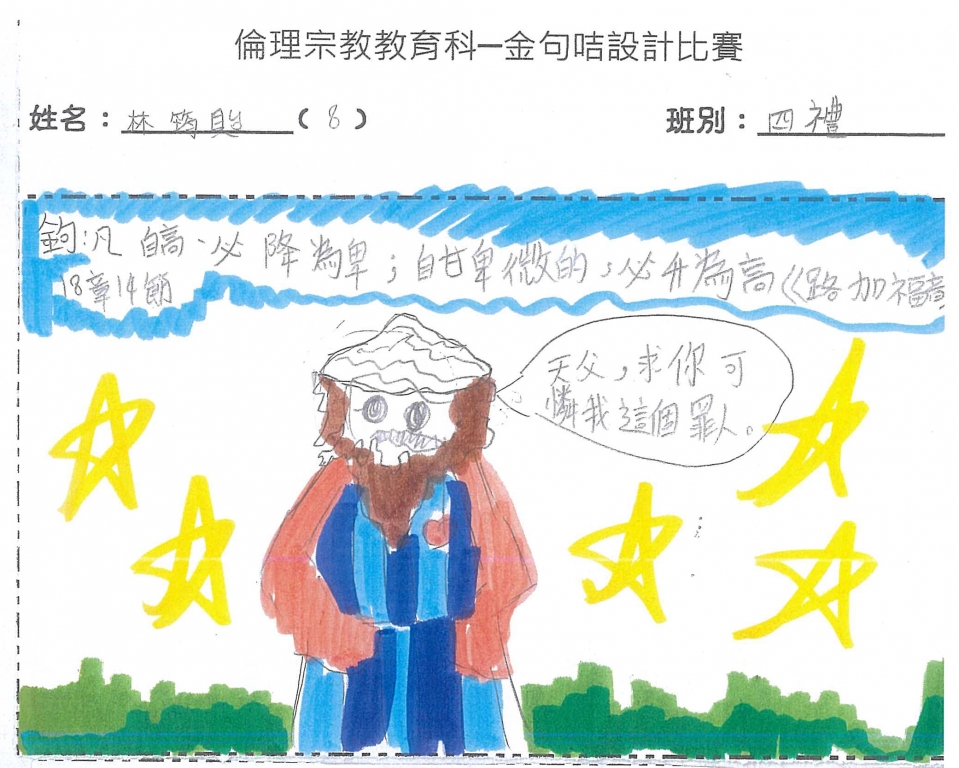 倫理宗教教育科─金句咭設計比賽
姓名：林筠貽（8）
班別：四禮
鈞:凡自高,必降為卑；自甘卑微的,必升為高《路加福音
18章14節
天父,求你可
憐我這個罪人。